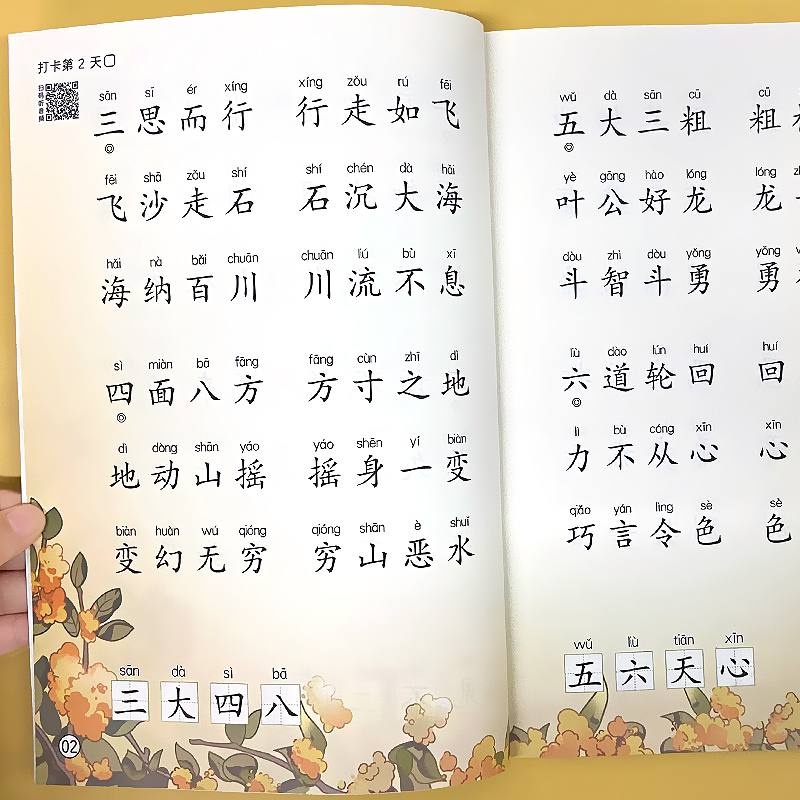 打卡第 2 天
扫码听音频
sān sī ér xíng xíng zǒu rú fēi
三思而行 行走如飞
fēi shā zǒu shí shí chén dà hǎi
飞沙走石 石沉大海
hǎi nà bǎi chuān chuān liú bù xī
海纳百川 川流不息
sì miàn bā fāng fāng cùn zhī dì
四面八方 方寸之地
dì dòng shān yáo yáo shēn yí biàn
地动山摇 摇身一变
biàn huàn wú qióng qióng shān è shuǐ
变幻无穷 穷山恶水
sān dà sì bā
三大四八
02
wǔ dà sān cū cū
五大三粗 粗
yè gōng hào lóng lóng
叶公好龙 龙
dòu zhì dòu yǒng yǒng
斗智斗勇 勇
liù dào lún huí huí
六道轮回 回
lì bù cóng xīn xīn
力不从心 心
qiǎo yán lìng sè sè
巧言令色 色
wǔ liù tiān xīn
五六天心